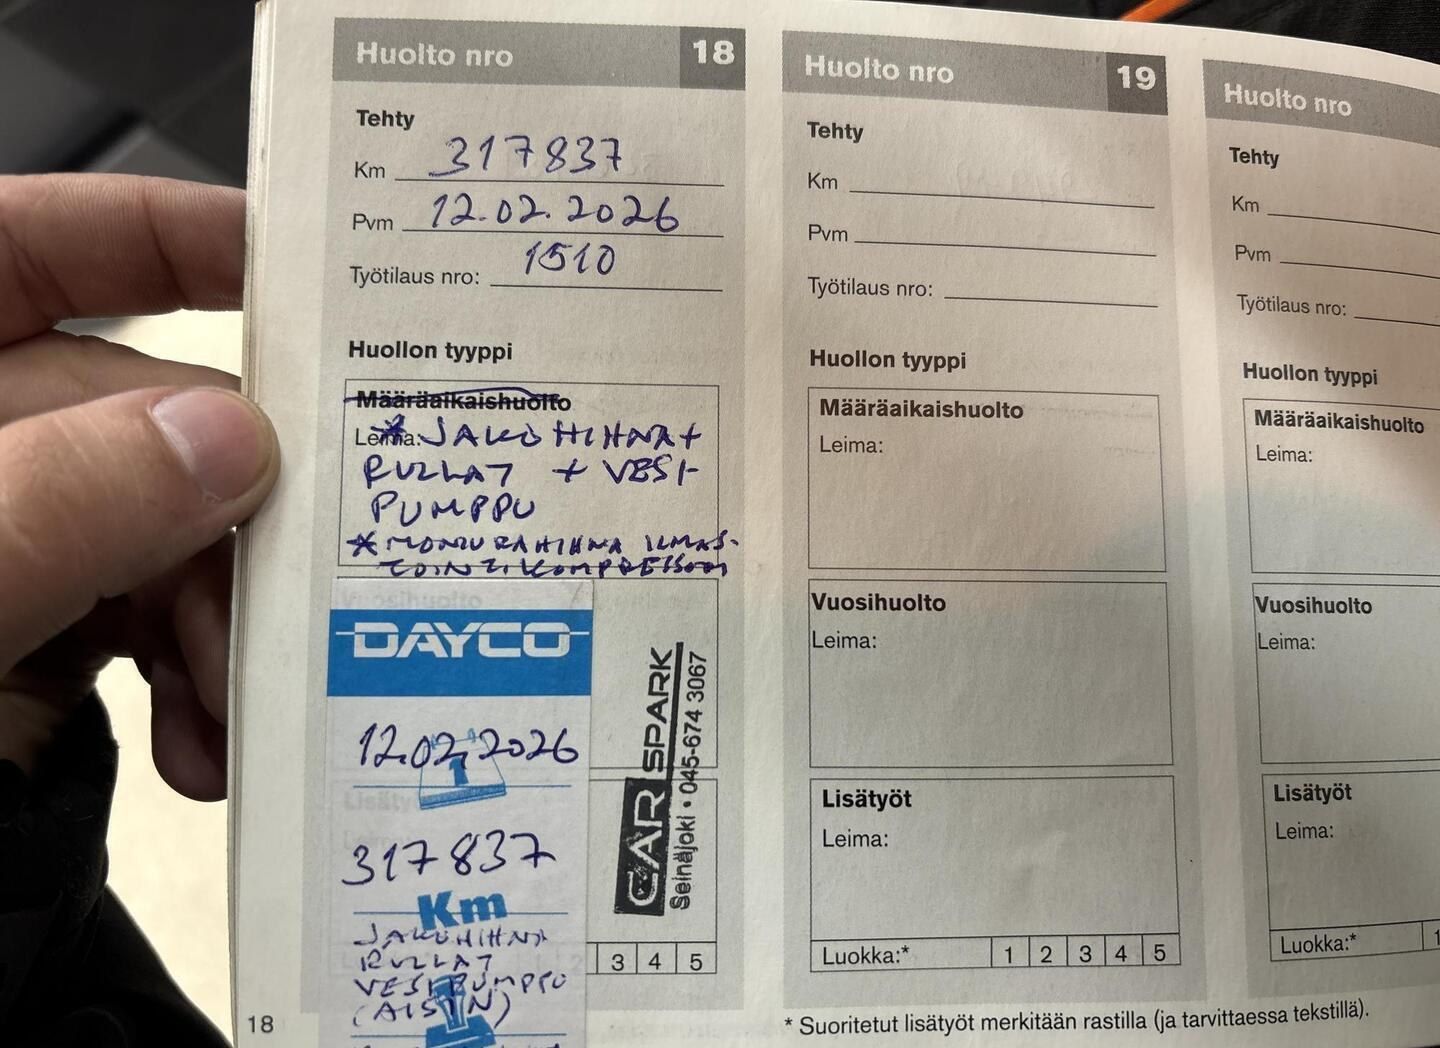 Huolto nro 18
Tehty
Km 317837
Pvm 12.02.2026
Työtilaus nro: 1510
Huollon tyyppi
Määräaikaishuolto
Leima: * JAKOHIHNA +
RULLAT + VESI-
PUMPPU
* MONIURAHIHNA ILMAS-
TOINTIKOMPRESSORI
Vuosihuolto
DAYCO
12.02.2026
1
317837
Km
JAKOHIHNA
RULLAT
VESIPUMPPU
(AISIN)
CAR SPARK
Seinäjoki • 045-674 3067
Lisätyöt
2 3 4 5
18
Huolto nro 19
Tehty
Km
Pvm
Työtilaus nro:
Huollon tyyppi
Määräaikaishuolto
Leima:
Vuosihuolto
Leima:
Lisätyöt
Leima:
Luokka:* 1 2 3 4 5
* Suoritetut lisätyöt merkitään rastilla (ja tarvittaessa tekstillä).
Huolto nro
Tehty
Km
Pvm
Työtilaus nro:
Huollon tyyppi
Määräaikaishuolto
Leima:
Vuosihuolto
Leima:
Lisätyöt
Leima:
Luokka:* 1